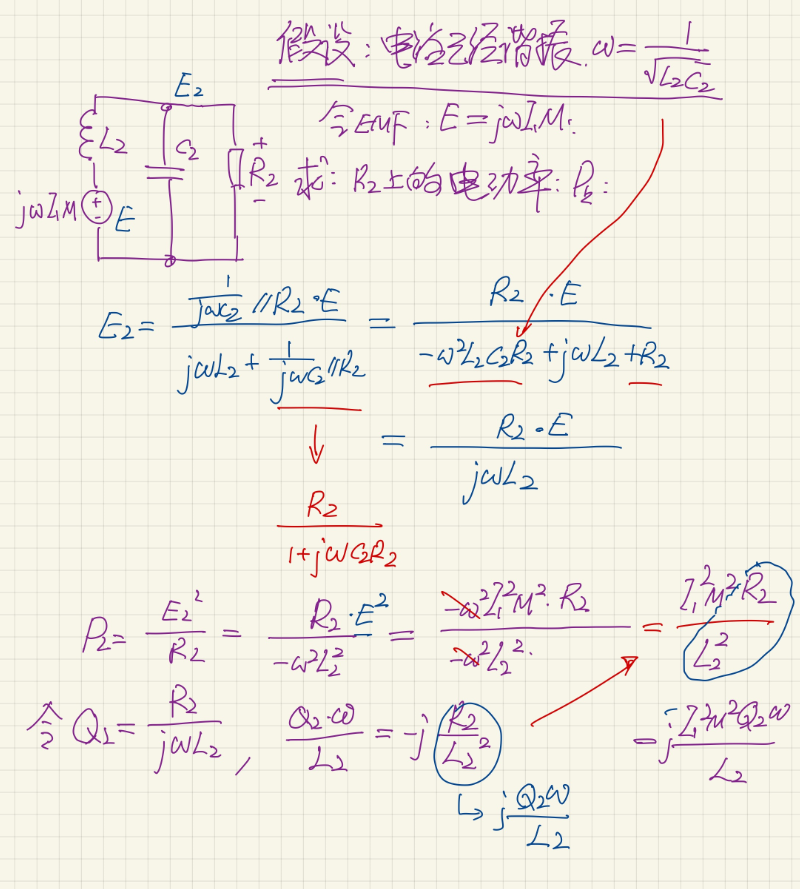 假设：电路已经谐振. ω=1/√(L₂C₂)
令EMF：E=jωI₁M.
求：R₂上的电功率：P₂：
E₂
L₂
C₂
+
R₂
-
jωI₁M
+
-
E
E₂ = (1/(jωC₂) // R₂ · E) / (jωL₂ + 1/(jωC₂) // R₂) = (R₂ · E) / (-ω²L₂C₂R₂ + jωL₂ + R₂)
= (R₂ · E) / (jωL₂)
R₂ / (1+jωC₂R₂)
P₂ = E₂²/R₂ = (R₂ · E²) / (-ω²L₂²) = (-ω²I₁²M² · R₂) / (-ω²L₂²) = (I₁²M²R₂) / L₂²
令 Q₂ = R₂/(jωL₂), (Q₂·ω)/L₂ = -j R₂/L₂²
= j (I₁²M²Q₂ω)/L₂
↳ j (Q₂ω)/L₂